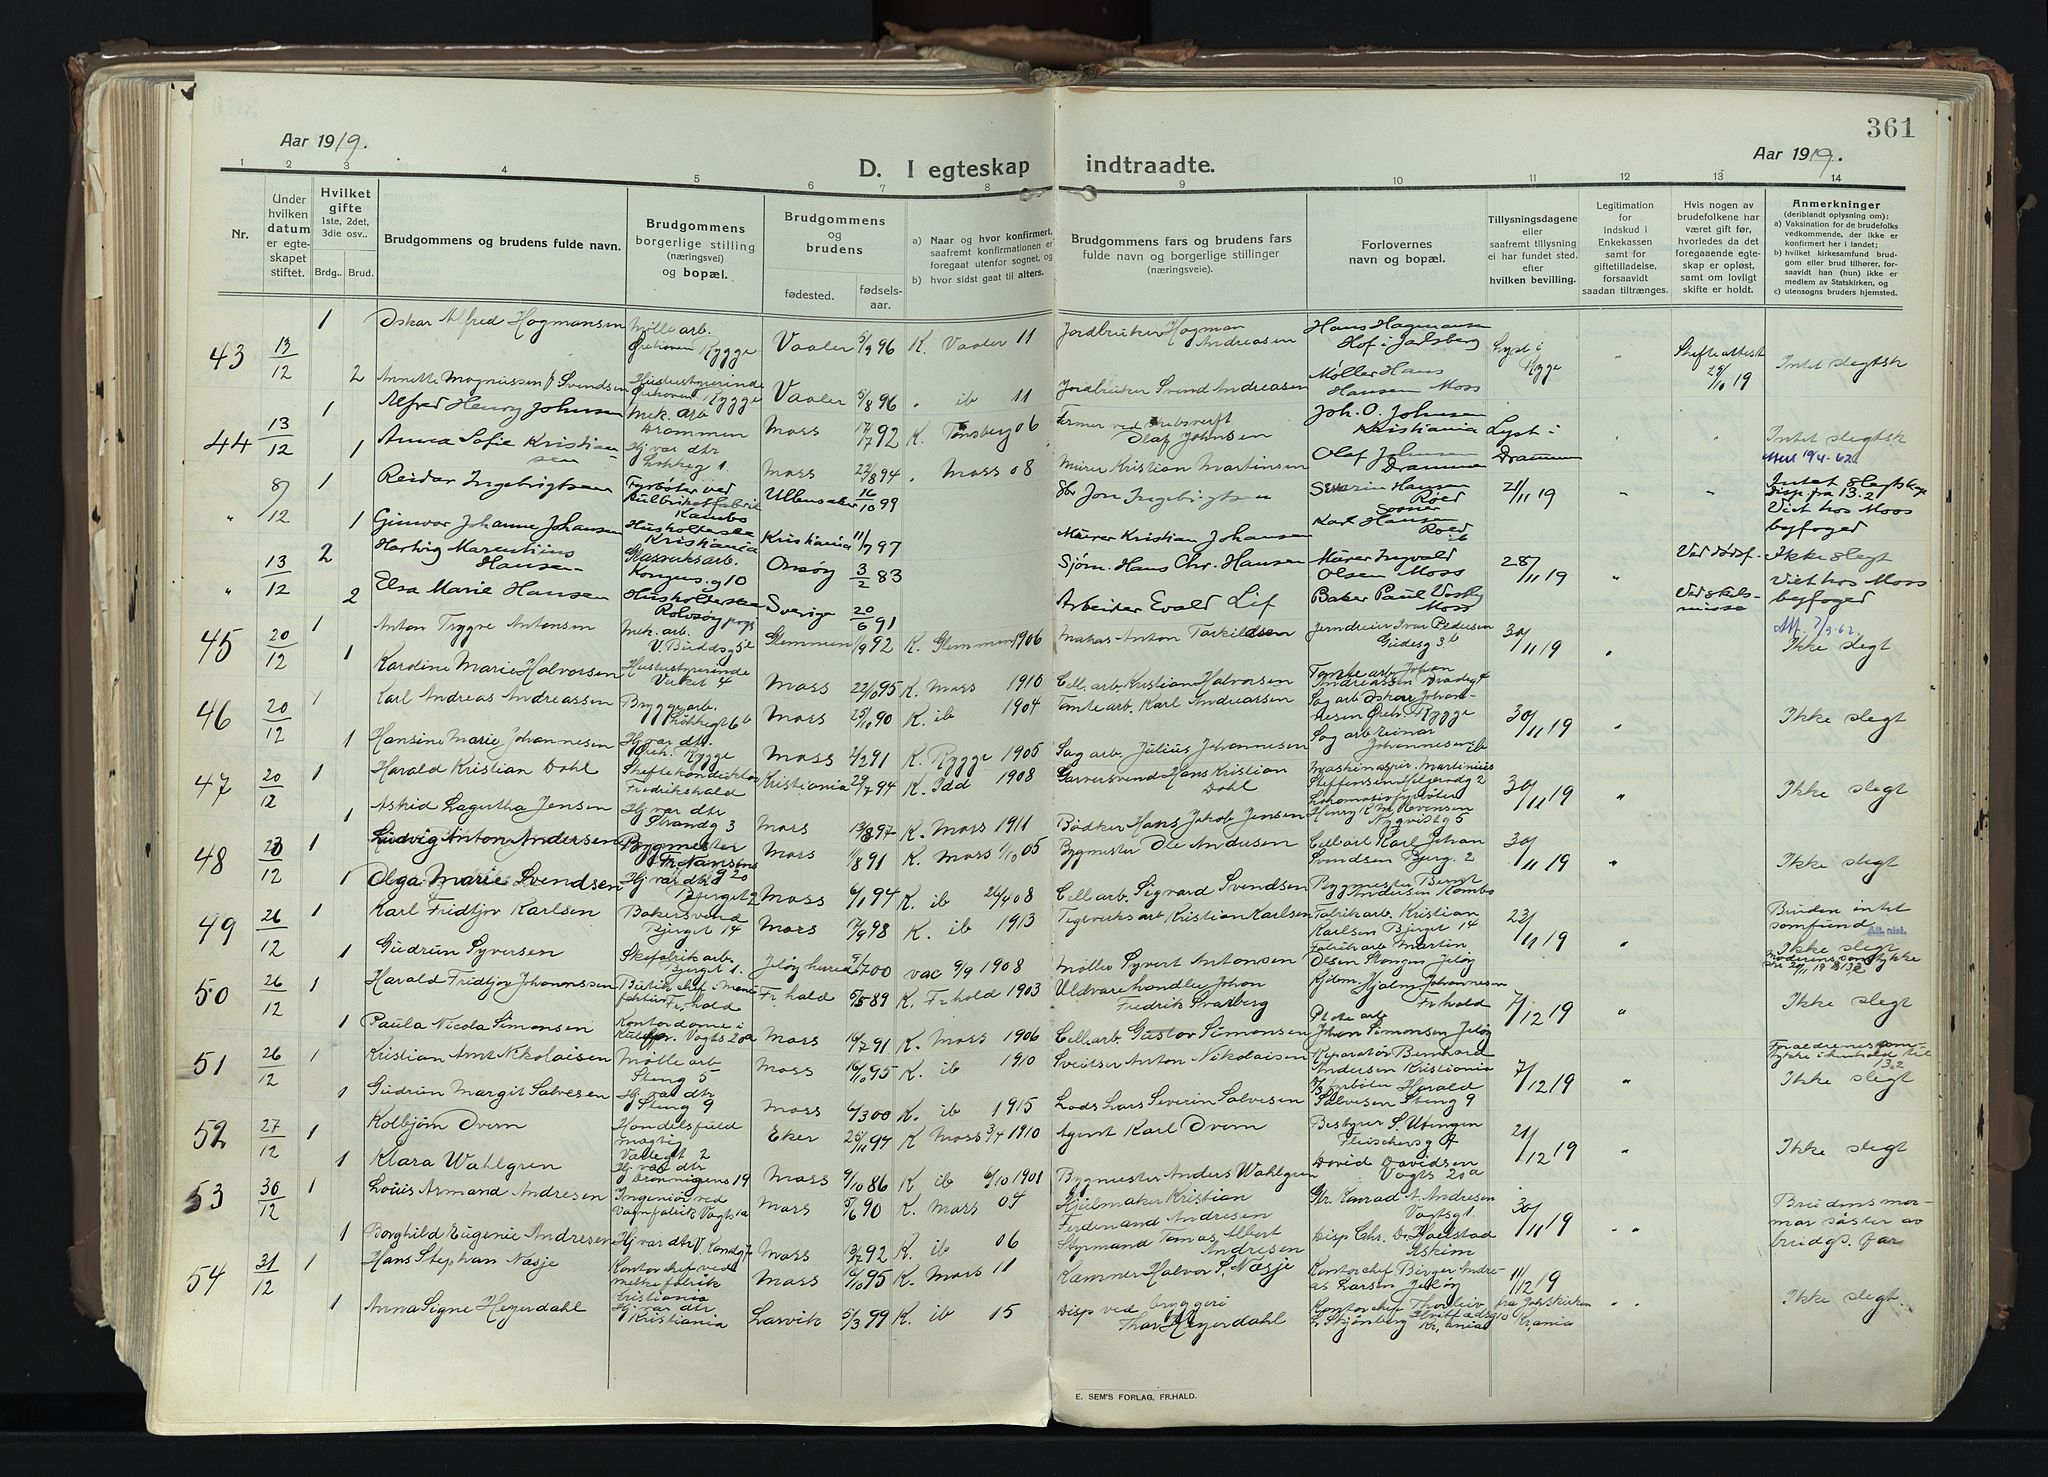 361
Aar 1919.
Aar 1919.
D. I egteskap indtraadte.
1 2 3 4 5 6 7 8 9 10 11 12 13 14
Nr.
Under hvilken datum er egteskapet stiftet.
Hvilket gifte 1ste, 2det, 3die osv..
Brdg.. Brud.
Brudgommens og brudens fulde navn.
Brudgommens borgerlige stilling (næringsvei) og bopæl.
Brudgommens og brudens
fødested.
fødsels-aar.
a) Naar og hvor konfirmert, saafremt konfirmationen er foregaat utenfor sognet, og
b) hvor sidst gaat til alters.
Brudgommens fars og brudens fars fulde navn og borgerlige stillinger (næringsveie).
Forlovernes navn og bopæl.
Tillysningsdagene eller saafremt tillysning ei har fundet sted, efter hvilken bevilling.
Legitimation for indskud i Enkekassen samt for giftetilladelse, forsaavidt saadan tiltrænges.
Hvis nogen av brudefolkene har været gift før, hvorledes da det foregaaende egteskap er opløst, samt om lovligt skifte er holdt.
Anmerkninger (deriblandt oplysning om):
a) Vaksination for de brudefolks vedkommende, der ikke er konfirmert her i landet;
b) hvilket kirkesamfund brudgom eller brud tilhører, forsaavidt han (hun) ikke er medlem av Statskirken, og
c) utensogns bruders hjemsted.
43 13/12 1 Oskar Alfred Hogmansen Mølle arb. Ørehaven Rygge Vaaler 5/9 96 K. Vaaler 11 Jordbruker Hogman Andreasen Hans Hagmansen Hof i Jalsberg Lyst i Rygge " Skifteattest 25/11 19 Intet slegtsk
2 Annette Magnussen f Svendsen Husbestyrerinde Ørehaven Rygge Vaaler 5/8 96 " ib 11 Jordbruker Svend Andreasen Møller Hans Hansen Moss
44 13/12 1 Alfred Henry Johnsen Mek. arb Drammen Moss 17/7 92 K. Tønsberg 06 Former ved Ørebsverft Olaf Johnsen Joh. O. Johnsen Kristiania Lyst i Drammen " " Intet slegtsk
1 Anna Sofie Kristiansen Hj var dtr Løkkeg 1. Moss 22/8 94 " Moss 08 Murer Kristian Martinsen Olaf Johnsen Drammen
" 8/12 1 Reidar Ingebrigtsen Fyrbøter ved Kambo Ullensaker 16/10 99 Gbr Jon Ingebrigtsen Severin Hansen Røed Soner 21/11 19 " " Intet slegtskap Disp fra 13.2 Viet hos Moss byfoged
1 Gunvor Johanne Johansen Husholderske Kristiania Kristiania 11/7 97 Murer Kristian Johansen Karl Hansen Roed
" 13/12 2 Hartvig Marentius Hansen Glasverksarb. Kongens g 10 Onsøy 3/2 83 Sjøm. Hans Chr. Hansen Murer Ingvald Olsen Moss 28/11 19 " Ved dødsf. Ikke slegt Viet hos Moss byfoged
2 Elsa Marie Hansen Husholderske Rolvsøy Sverige 20/6 91 Arbeider Evald Lif Baker Paul Moss Ved skilsmisse
45 20/12 1 Anton Trygve Antonsen Mek. arb. Glemmen 1/9 92 K. Glemmen 1906 Anton Tarkildsen Jerndreier Iver Pedersen Gudesg 3b 30/11 19 " Ikke slegt
1 Kardine Marie Halvorsen Husbestyrerinde Verket 4 Moss 22/10 95 K. Moss 1910 Cell. arb. Kristian Halvorsen Tomte arb. Johan Andreassen
46 20/12 1 Karl Andreas Andreassen Bryggearb. Løkkegt 6b Moss 25/11 90 K. ib 1904 Tomte arb. Karl Andreassen Sag arb Oskar Johannesen Øreh. Rygge 30/11 19 " Ikke slegt
1 Hansine Marie Johannesen Hj var dtr. Øreh. Rygge Moss 2/2 91 K. Rygge 1905 Sag arb. Julius Johannesen Sag arb Einar Johannesen
47 20/12 1 Harald Kristian Dahl Skofte konduktør Fredrikshald Kristiania 29/7 94 K. Idd 1908 Garversvend Hans Kristian Dahl Maskinspir. Martinius Steffensen 30/11 19 " Ikke slegt
1 Astrid Lagertha Jensen Hj var dtr Strandg 3 Moss 13/8 97 K. Moss 1911 Bødker Hans Jakob Jensen Lokomotivfyrbøter Henry Nyqvistg 5
48 20/12 1 Ludvig Anton Andersen Bygmester Fr. Nansens g 20 Moss 1/8 91 K. Moss 1/10 05 Bygmester Ole Andersen Cell arb Karl Johan Svendsen Bjerg. 2 30/11 19 " Ikke slegt
1 Olga Marie Svendsen Hj var dtr Bjerget 2 Moss 6/1 94 K. ib 26/4 08 Cell arb. Sigvard Svendsen Bygmester Bernt Andersen Kambo
49 26/12 1 Karl Fridtjov Karlsen Bakersvend Bjerget 14 Moss 17/9 98 K. ib 1913 Teglverks arb Kristian Karlsen Fabrik arb. Kristian Karlsen Bjerget 14 23/11 19 " Bruden intet samfund Ikke slegt
1 Gudrun Syversen Skofabrik arb. Bjerget 1. Jeløy herred 00 vac 9/9 1908 Møller Syvert Antonsen Fabrik arb Martin Olsen Stangen Jeløy
50 26/12 1 Harald Fridtjov Johannessen Fr,hald Fr,hald 5/5 89 K. Fr.hald 1903 Uldvarehandler Johan Fredrik Svarberg Hjalm Johannesen Fr.hald 7/12 19 " Ikke slegt
1 Paula Nicola Simonsen Kontordame i Vogts 20a Moss 16/7 91 K. Moss 1906 Cell. arb. Gustav Simonsen Johan Simonsen Jeløy
51 26/12 1 Kristian Arnt Nikolaisen Mølle arb Steng 5 Moss 16/10 95 K. ib 1910 Sveitser Anton Nikolaisen Reparatør Bernhard Andersen Kristiania 7/12 19 " Foraldrenes samtykke i henhold til 13.2 Ikke slegt
1 Gudrun Margit Salvesen Hj var dtr Steng 9 Moss 6/3 00 K. ib 1915 Lods Lars Severin Salvesen Fyrbøter Harald Salvesen Steng 9
52 27/12 1 Kolbjørn Overn Handelsfuldmægtig Vallegt 2 Eker 25/11 94 K Moss 3/4 1910 Agent Karl Overn Bestyrer S. Utengen Fleischersg 7 21/12 19 " Ikke slegt
1 Klara Wahlgren Hj var dtr Dronningens 19 Moss 9/10 86 K ib 6/10 1901 Bygmester Anders Wahlgren David Davidsen Vogts 20a
53 30/12 1 Louis Armand Andresen Ingeniør ved Vognfabrik Vogts 1a Moss 5/6 90 K. Moss 04 Hjulmaker Kristian Ferdinand Andresen Konrad A. Andresen Vogtsg 1. 30/11 19 " " Brudens mormor søster av brudgs. far
1 Borghild Eugenie Andresen Hj var dtr V. Kanalg 7 Moss 13/7 92 K. ib 06 Styrmand Tomas Albert Andresen Disp Chr. Dr. Haelstad Askim
54 31/12 1 Hans Stephan Næsje Kontorchef ved melkefabrik Kristiania Moss 16/10 95 K. Moss 11 Kæmner Halvor S. Næsje Kontorchef Birger Andreas Larsen Jeløy 11/12 19 " " Ikke slegt
1 Anna Signe Heyerdahl Hj var dtr. Kristiania Larvik 5/3 99 K. ib 15 Disp ved bryggeri Thor Heyerdahl Kontorchef Thorleiv L. Stjernberg Kr,ania fra Joh.kirken Kr,ania
E. SEM'S FORLAG, FR.HALD.